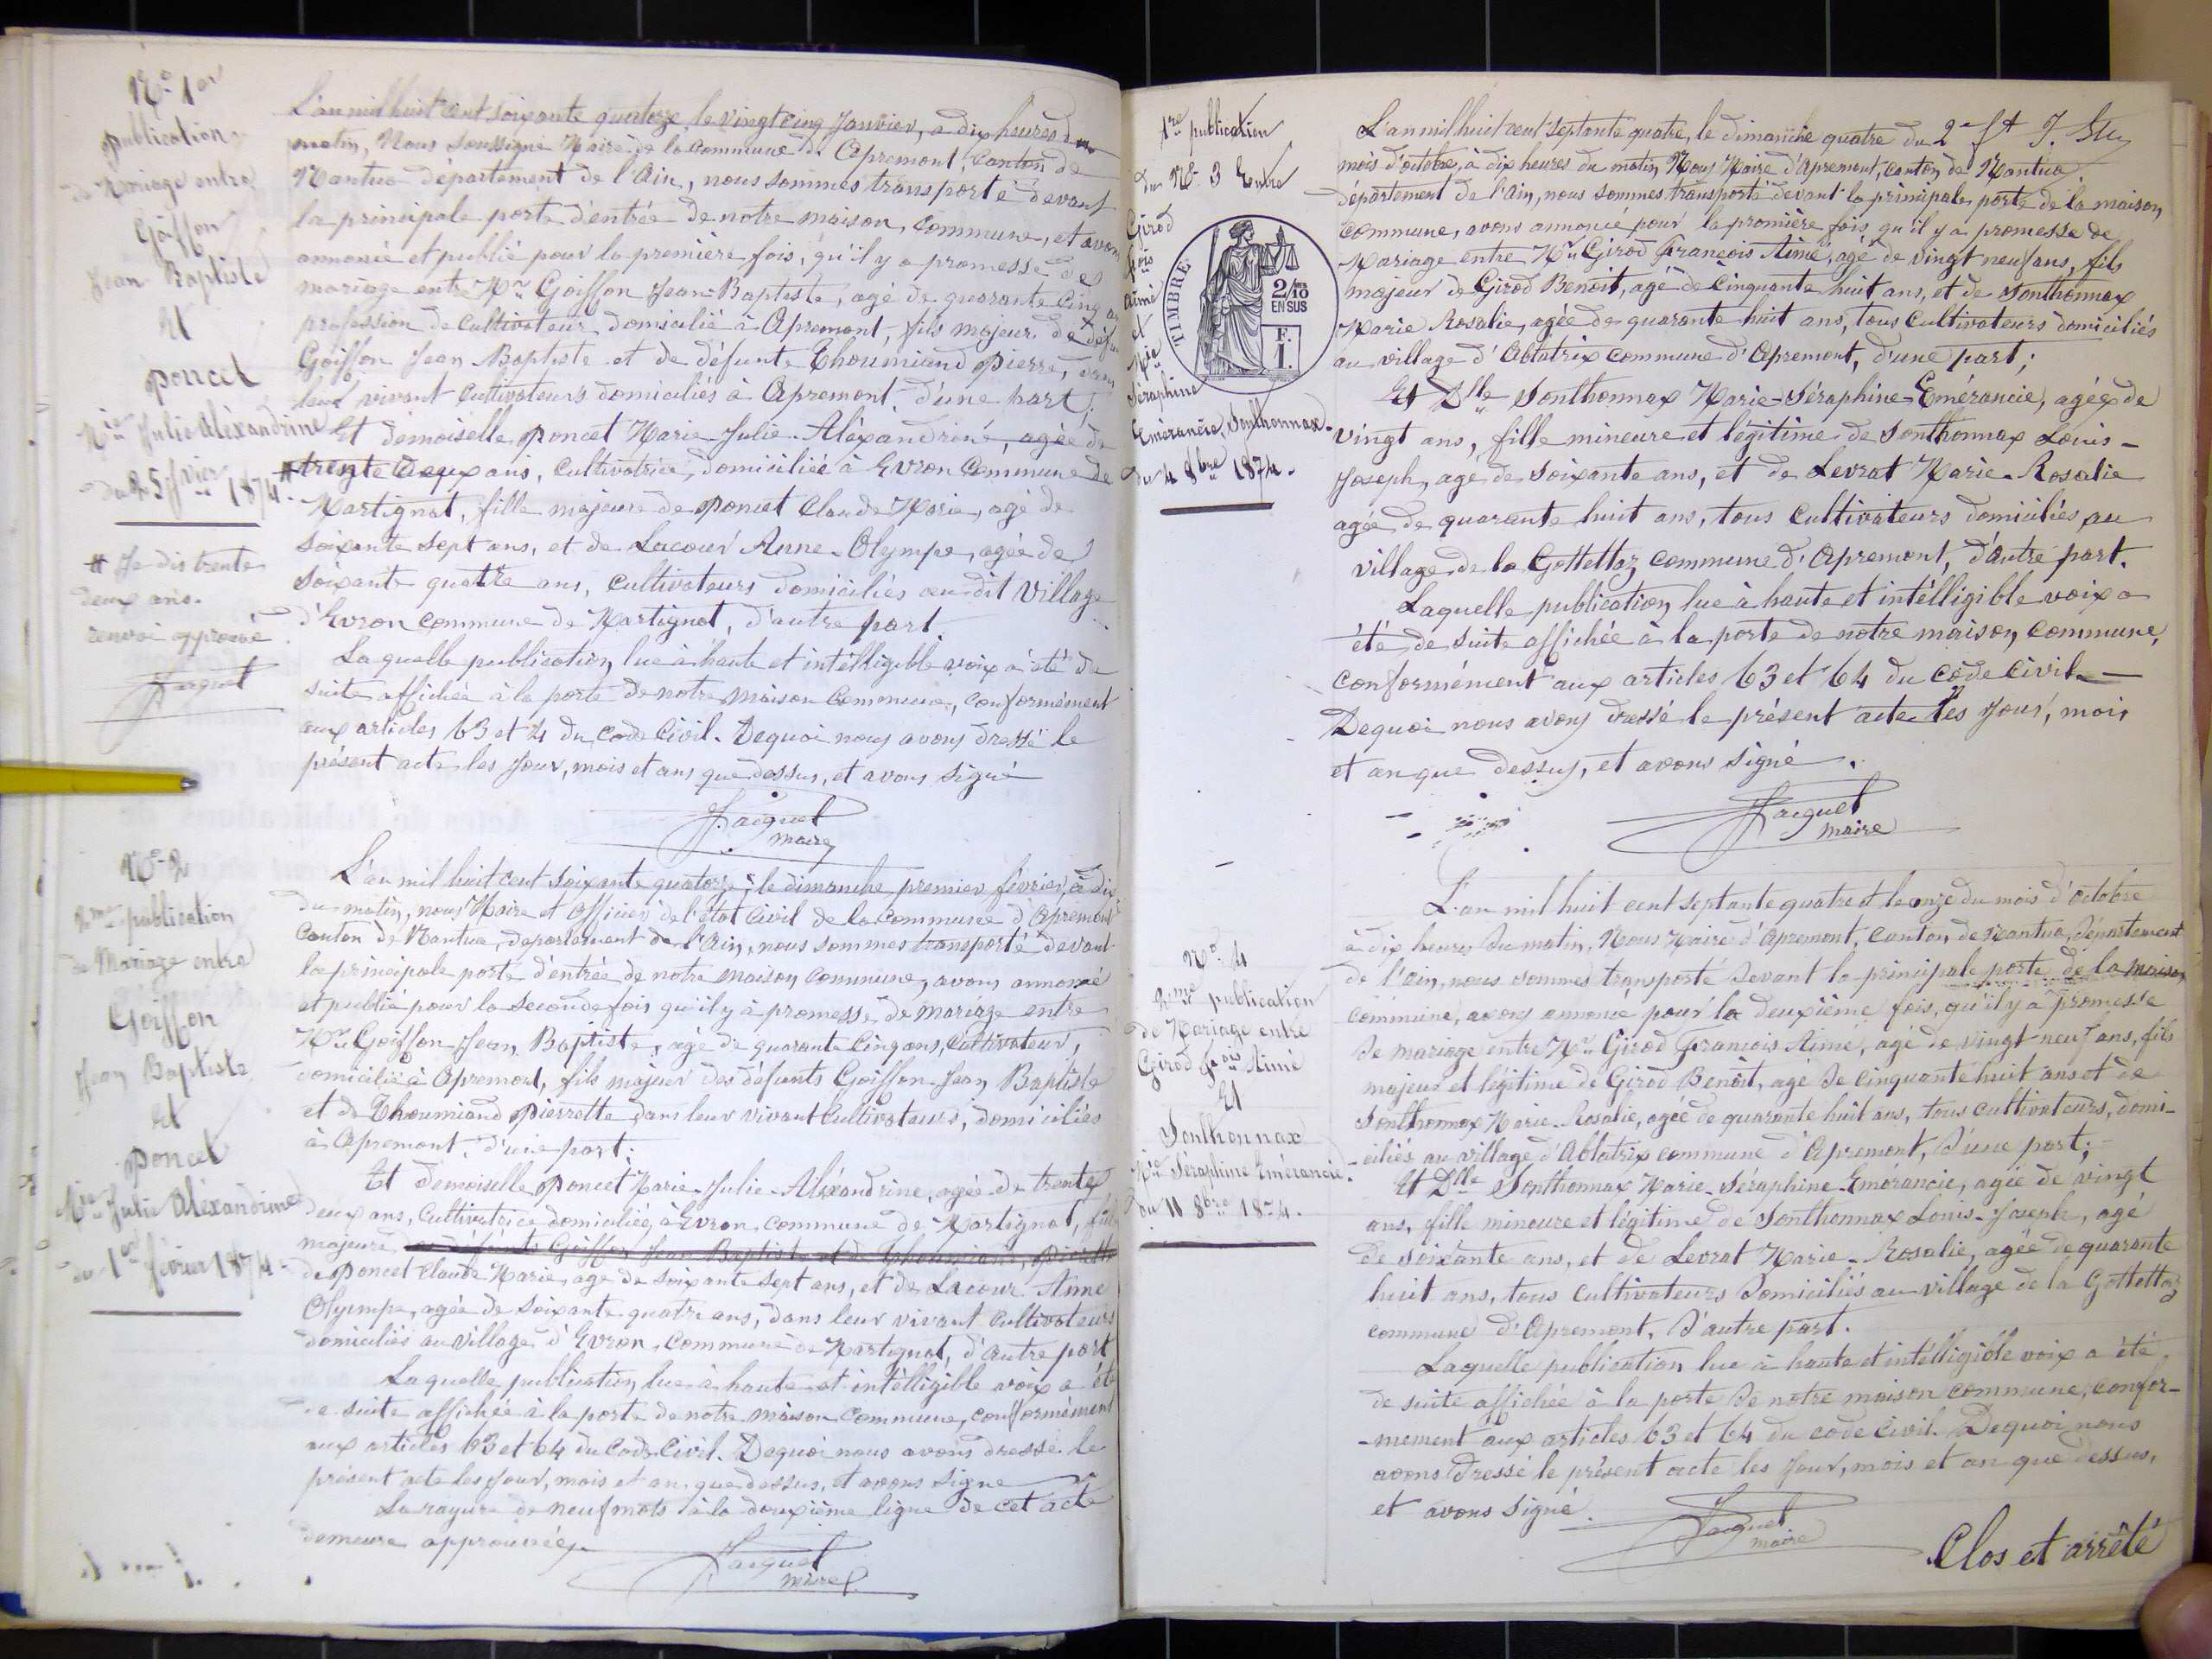 No 1er
publication
de Mariage entre
Goiffon
Jean Baptiste
Et
Poncet
Mie Julie Aléxandrine
du 25 Jvier 1874.
# Je dis trente
deux ans.
renvoi approuvé
Jacquet
L'an mil huit cent soixante quatorze, le vingt cinq Janvier, à dix heures du
matin, Nous soussigné Maire de la commune d'Apremont, Canton de
Nantua département de l'Ain, nous sommes transporté devant
la principale porte d'entrée de notre maison, commune, et avons
annoncé et publié pour la première fois, qu'il y a promesse de
mariage entre Mr Goiffon Jean-Baptiste, agé de quarante cinq ans
profession de cultivateur domicilié à Apremont, fils majeur de défunt
Goiffon Jean Baptiste et de défunte Thoumiand Pierre, dans
leur vivant cultivateurs domiciliés à Apremont d'une part;
Et demoiselle Poncet Marie-Julie-Aléxandrine, agée de
# trente deux ans, Cultivatrice, domiciliée à Evron Commune de
Martignat, fille majeure de Poncet Claude Marie, agé de
soixante sept ans, et de Lacour Anne-Olympe, agée de
soixante quatre ans, cultivateurs domiciliés au dit Village
d'Evron commune de Martignat, d'autre part.
Laquelle publication, lue à haute et intélligible voix a été de
suite affichée à la porte de notre maison Commune, conformément
aux articles 63 et 4 du Code Civil. Dequoi nous avons dressé le
présent acte les Jour, mois et ans que dessus, et avons signé
Jacquet
maire
No 2
2me publication
de Mariage entre
Goiffon
Jean Baptiste
Et
Poncet
Mie Julie Aléxandrine
du 1er février 1874.
L'an mil huit cent soixante quatorze, le dimanche premier février, à dix
du matin, nous Maire et officier de l'état civil de la commune d'Apremont
Canton de Nantua, département de l'Ain, nous sommes transporté devant
la principale porte d'entrée de notre maison commune, avons annoncé
et publié pour la seconde fois qu'il y à promesse de mariage entre
Mr Goiffon Jean Baptiste, agé de quarante cinq ans, Cultivateur,
domicilié à Apremont, fils majeur des défunts Goiffon Jean Baptiste
et de Thoumiand Pierrette dans leur vivant Cultivateurs, domiciliés
à Apremont, d'une part;
Et demoiselle Poncet Marie-Julie-Aléxandrine, agée de trente
deux ans, Cultivatrice domiciliée à Evron, commune de Martignat, fille
majeure des défunts Goiffon Jean Baptiste et de Thoumiand, Pierrette
de Poncet Claude Marie, age de soixante sept ans, et de Lacour Anne
Olympe, agée de soixante quatre ans, dans leur vivant Cultivateurs
domiciliés au village d'Evron, commune de Martignat, d'autre part
Laquelle publication, lue à haute et intélligible voix a été
de suite affichée à la porte de notre maison commune, conformément
aux articles 63 et 64 du Code Civil. Dequoi nous avons dressé le
présent acte les Jour, mois et an que dessus, et avons signe
La rayure de neuf mots à la douxième ligne de cet acte
demeure approuvée.
Jacquet
maire
1re publication
du No 3 Entre
Girod
fois
Aimé
et
Mie
Séraphine
Emérancie, Sonthonnax.
du 4 8bre 1874.
TIMBRE
2/10
EN SUS
F.
1.
L'an mil huit cent septante quatre, le dimanche quatre du 2e ft
mois d'octobre, à dix heures du matin, Nous Maire d'Apremont, canton de Nantua
département de l'Ain, nous sommes transporté devant la principale porte de la maison,
commune, avons annoncé pour la première fois, qu'il y a promesse de
Mariage entre Mr Girod François Aimé, agé de vingt neuf ans, fils
majeur de Girod Benoit, agé de cinquante huit ans, et de Sonthonnax
Marie Rosalie, agée de quarante huit ans, tous Cultivateurs domiciliés
au village d'Ablatrix commune d'Apremont, d'une part;
Et Dlle Sonthonnax Marie-Séraphine-Emérancie, agée de
vingt ans, fille mineure et légitime de Sonthonnax Louis-
Joseph, age de soixante ans, et de Levrat Marie-Rosalie
agée de quarante huit ans, tous Cultivateurs domiciliés au
village de la Gottettaz commune d'Apremont, d'autre part.
Laquelle publication, lue à haute et intélligible voix a
été de suite affichée à la porte de notre maison, commune,
conformément aux articles 63 et 64 du Code Civil.
Dequoi nous avons dressé le présent acte les Jour, mois
et an que dessus, et avons signé.
Jacquet
maire
No 4
2me publication
de Mariage entre
Girod fois Aimé
Et
Sonthonnax
Mie Séraphine Emérancie.
du 11 8bre 1874.
L'an mil huit cent septante quatre et le onze du mois d'octobre
à dix heures du matin, Nous Maire d'Apremont, Canton de Nantua, département
de l'ain, nous sommes transporté devant la principale porte de la maison
commune, avons annoncé pour la deuxième fois, qu'il y a promesse
de mariage entre Mr Girod François Aimé, agé de vingt neuf ans, fils
majeur et légitime de Girod Benoît, agé de cinquante huit ans et de
Sonthonnax Marie Rosalie, agée de quarante huit ans, tous cultivateurs, domi-
-ciliés au village d'Ablatrix commune d'Apremont, d'une part;
Et Dlle Sonthonnax Marie-Séraphine-Emérancie, agée de vingt
ans, fille mineure et légitime de Sonthonnax Louis-Joseph, agé
de soixante ans, et de Levrat Marie-Rosalie, agée de quarante
huit ans, tous cultivateurs domiciliés au village de la Gottettaz
commune d'Apremont, d'autre part.
Laquelle publication lue à haute et intélligible voix a été
de suite affichée à la porte de notre maison commune, confor-
-mement aux articles 63 et 64 du code civil. Dequoi nous
avons dressé le présent acte les Jour, mois et an que dessus,
et avons signé.
Jacquet
maire
Clos et arrêté